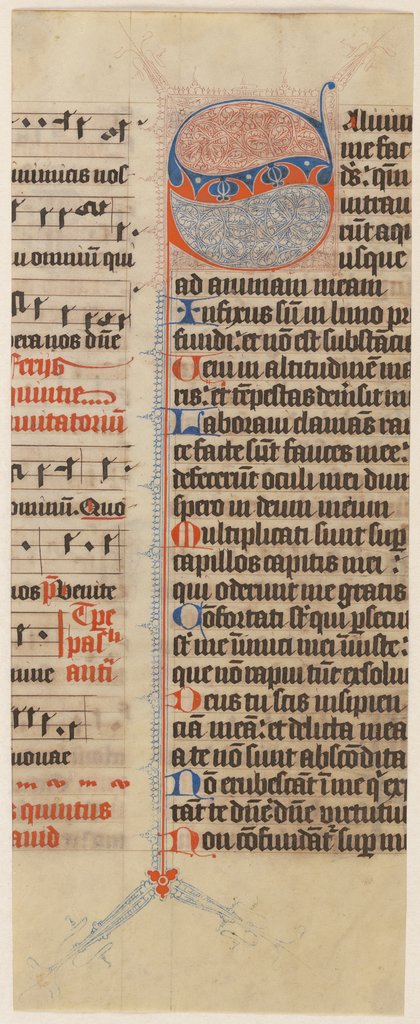 inimicis nos
omniū qui
nos dn̄e
ferijs
quintis
inuitatoriū
ominū. Quo
nos ps Venite
Tp̄e
pasch
antī
euouae
quintus
Dauid
Saluum
me fac
ds: qm̄
intrau
rūt aq
usque
ad animam meam
Infixus sū in limo pr
fundi: et nō est substācia
Ueni in altitudinem ma
ris: et tēpestas demsit m
Laboraui clamans rau
ce facte sūt fauces mee:
defecerūt oculi mei dum
spero in deum meum
Multiplicati sunt sup̄
capillos capitis mei :
qui oderunt me gratis
Cōfortati st̄ qui p̄secu
st̄ me inimici mei iniuste:
que nō rapui tūc exsolu
Deus tu scis insipien
ciā meā: et delicta mea
a te nō sunt abscōdita
Nō erubescāt ī me q̄ ex
tāt te dn̄e: dn̄e virtutū
Non cōfundāt sup̄ m